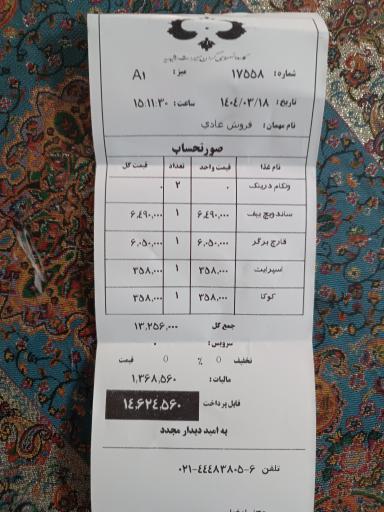 شماره: ۱۷۵۵۸ میز: A۱
تاریخ: ۱۴۰۴/۰۳/۱۸ ساعت: ۱۵:۱۱:۳۰
نام مهمان: فروش عادی
صورتحساب
نام غذا قیمت واحد تعداد قیمت کل
ولکام درینک ۰ ۲ ۰
ساندویچ بیف ۶,۴۹۰,۰۰۰ ۱ ۶,۴۹۰,۰۰۰
قارچ برگر ۶,۰۵۰,۰۰۰ ۱ ۶,۰۵۰,۰۰۰
اسپرایت ۳۵۸,۰۰۰ ۱ ۳۵۸,۰۰۰
کوکا ۳۵۸,۰۰۰ ۱ ۳۵۸,۰۰۰
جمع کل ۱۳,۲۵۶,۰۰۰
سرویس: ۰
تخفیف 0 % 0 قیمت
مالیات: ۱,۳۶۸,۵۶۰
قابل پرداخت ۱۴,۶۲۴,۵۶۰
به امید دیدار مجدد
تلفن ۰۲۱-۴۴۴۸۳۸۰۵-۶